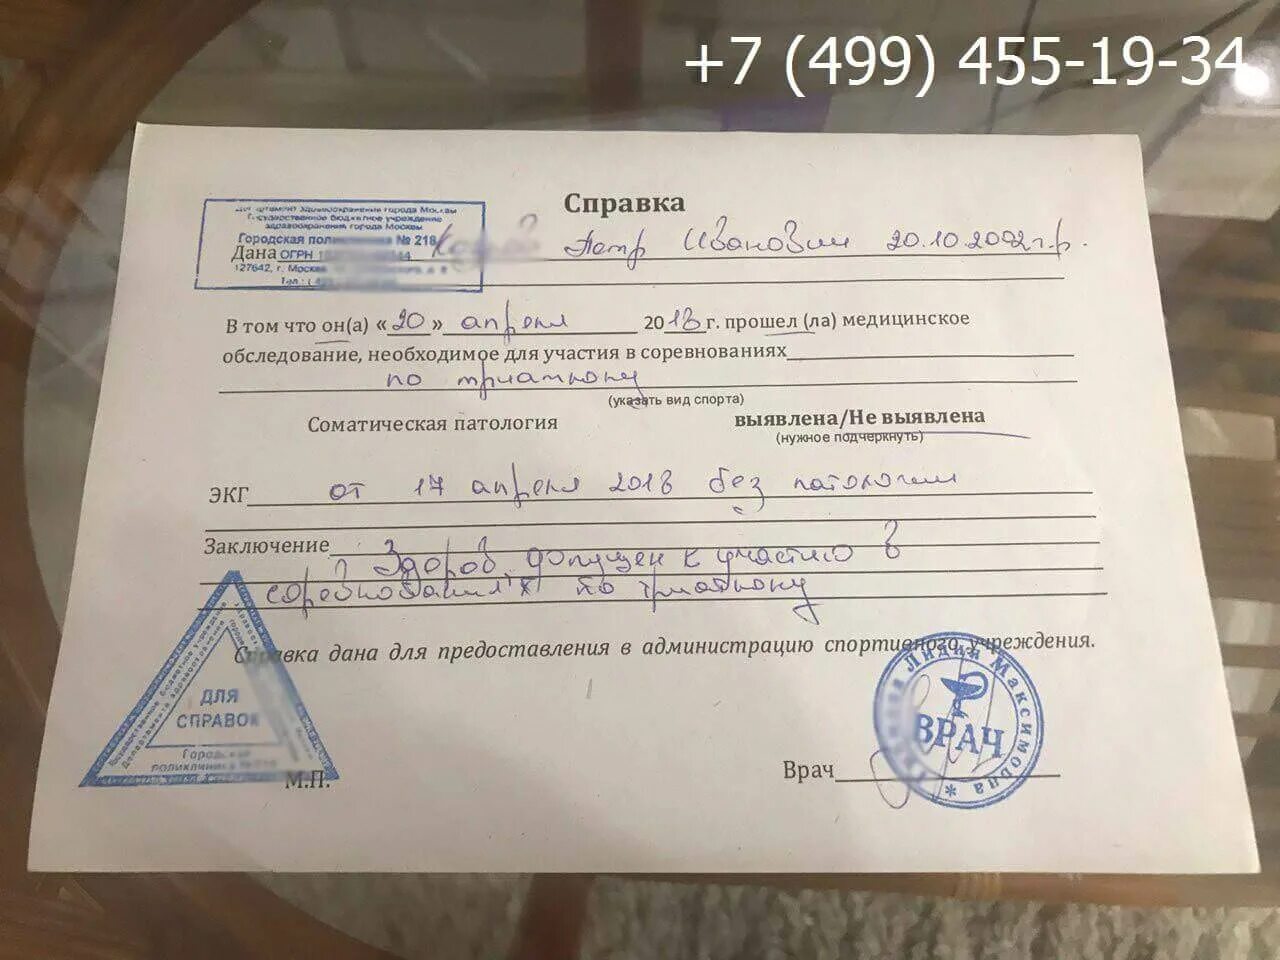 +7 (499) 455-19-34
Справка
Департамент здравоохранения города Москвы
Государственное бюджетное учреждение
здравоохранения города Москвы
Городская поликлиника № 218
Дана Петр Иванович 20.10.2002г.р.
ОГРН
127642, г. Москва
В том что он(а) «20» апреля 2018 г. прошел (ла) медицинское
обследование, необходимое для участия в соревнованиях
по триатлону
(указать вид спорта)
Соматическая патология выявлена/Не выявлена
(нужное подчеркнуть)
ЭКГ от 17 апреля 2018 без патологии
Заключение Здоров, допущен к участию в
соревнованиях по триатлону
Справка дана для предоставления в администрацию спортивного учреждения.
Государственное бюджетное учреждение
Департамента здравоохранения
ДЛЯ
СПРАВОК
Городская
поликлиника
М.П.
Врач
Лидия Максимовна *
ВРАЧ